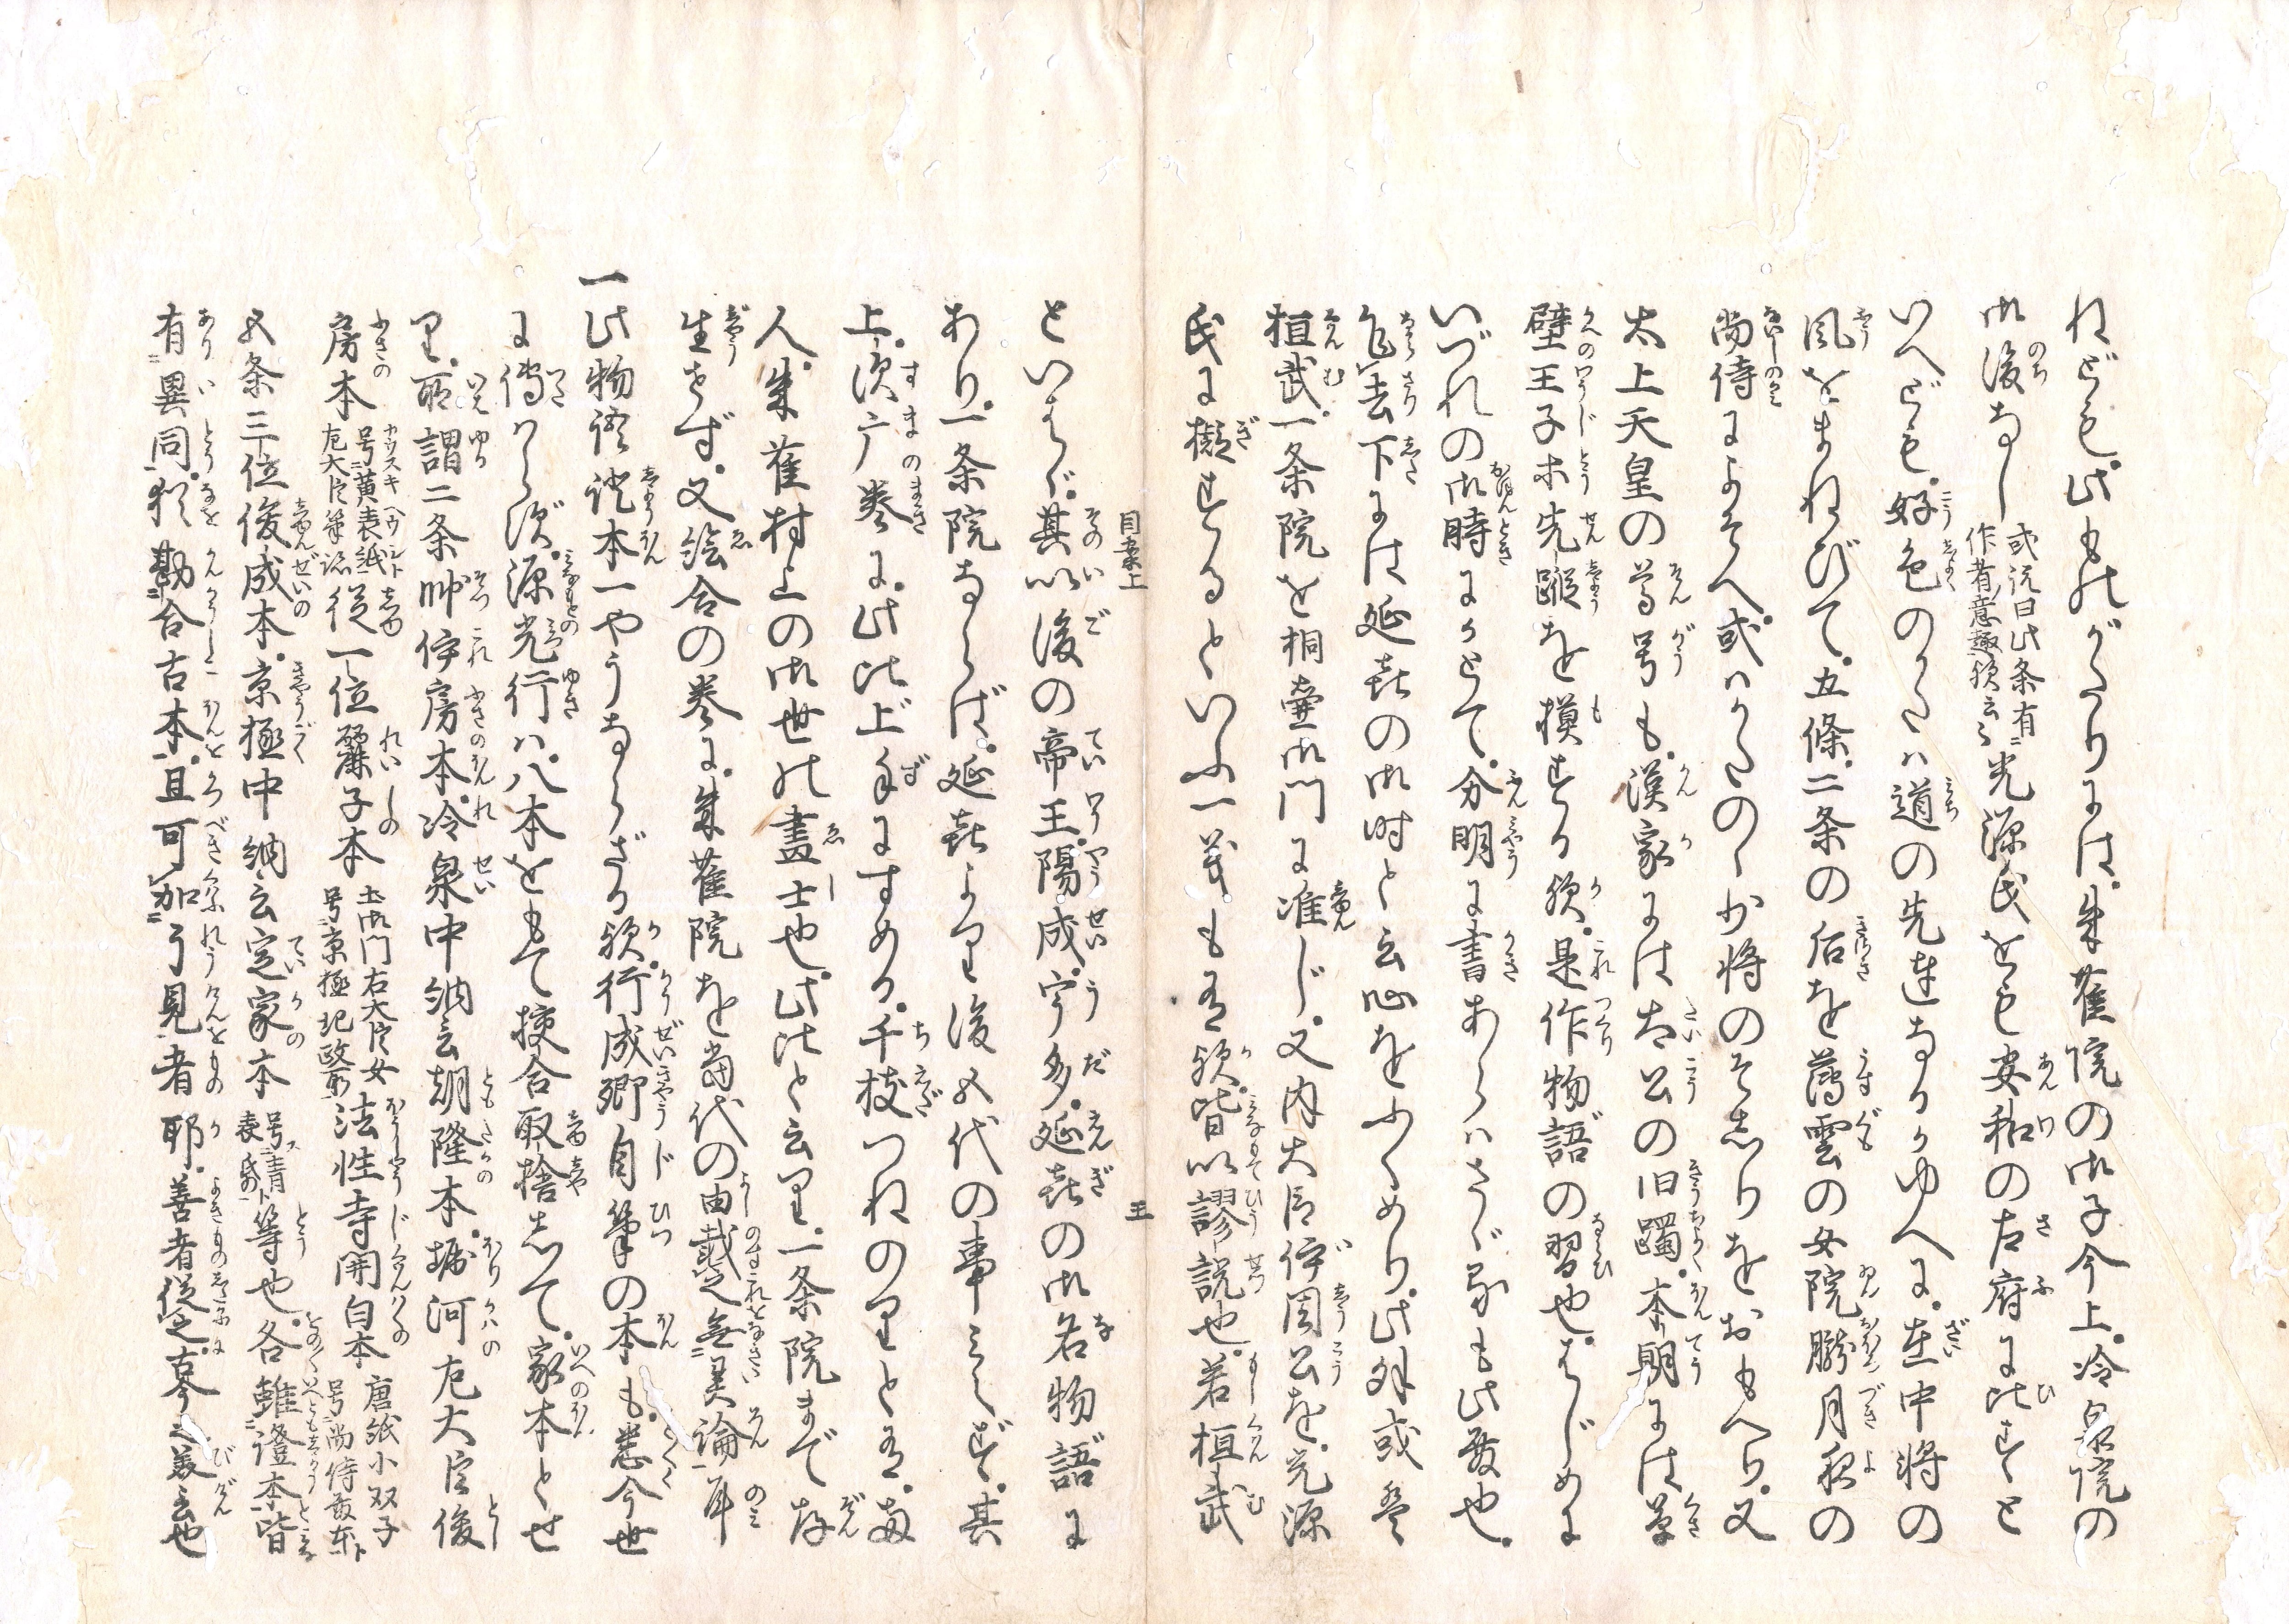 ねども此ものがたりには朱雀院の御子今上冷泉院の
御後なし或説曰此条有作者意趣歟云々光源氏をも安和の左府に比すと
いへども好色のかたは道の先達なるがゆへに在中将の
風をまねびて五條二条の后を薄雲の女院朧月夜の
尚侍によそへ或はかたのゝ少将のそしりをおもへり又
太上天皇の尊号も漢家には太公の旧躅本朝には草
壁王子等先蹤を摸する歟是作物語の習也はじめに
いづれの御時にかとて分明に書あらはさゞるも此故也
乍去下には延喜の御時と云心をふくめり此外或巻
桓武一条院を桐壺御門に准じ又内大臣伊周公を光源
氏に擬するといふ一義も有歟皆以謬説也若桓武
といはゞ其以後の帝王陽成宇多延喜の御名物語に
あり一条院ならば延喜より後五代の事みえず其
上次广巻に此比上手にすめる千枝つねのりと有両
人朱雀村上の御世の畫士也此比と云り一条院まで存
生せず又絵合の巻に朱雀院を當代の由載之無異論耳
一此物語證本一やうならざる歟行成卿自筆の本も悉今世
に傳はらず源光行ハ八本をもて挍合取捨して家本とせ
り所謂二条帥伊房本冷泉中納言朝隆本堀河左大臣俊
房本号黄表紙左大臣筆跡従一位麗子本土御門右大臣女号京極北政所法性寺関白本唐紙小双子号尚侍殿本ト
五条三位俊成本京極中納言定家本号青表紙ト等也各雖證本皆
有異同猶勘合古本且可加了見者耶善者従之古今之美言也
目案上
王